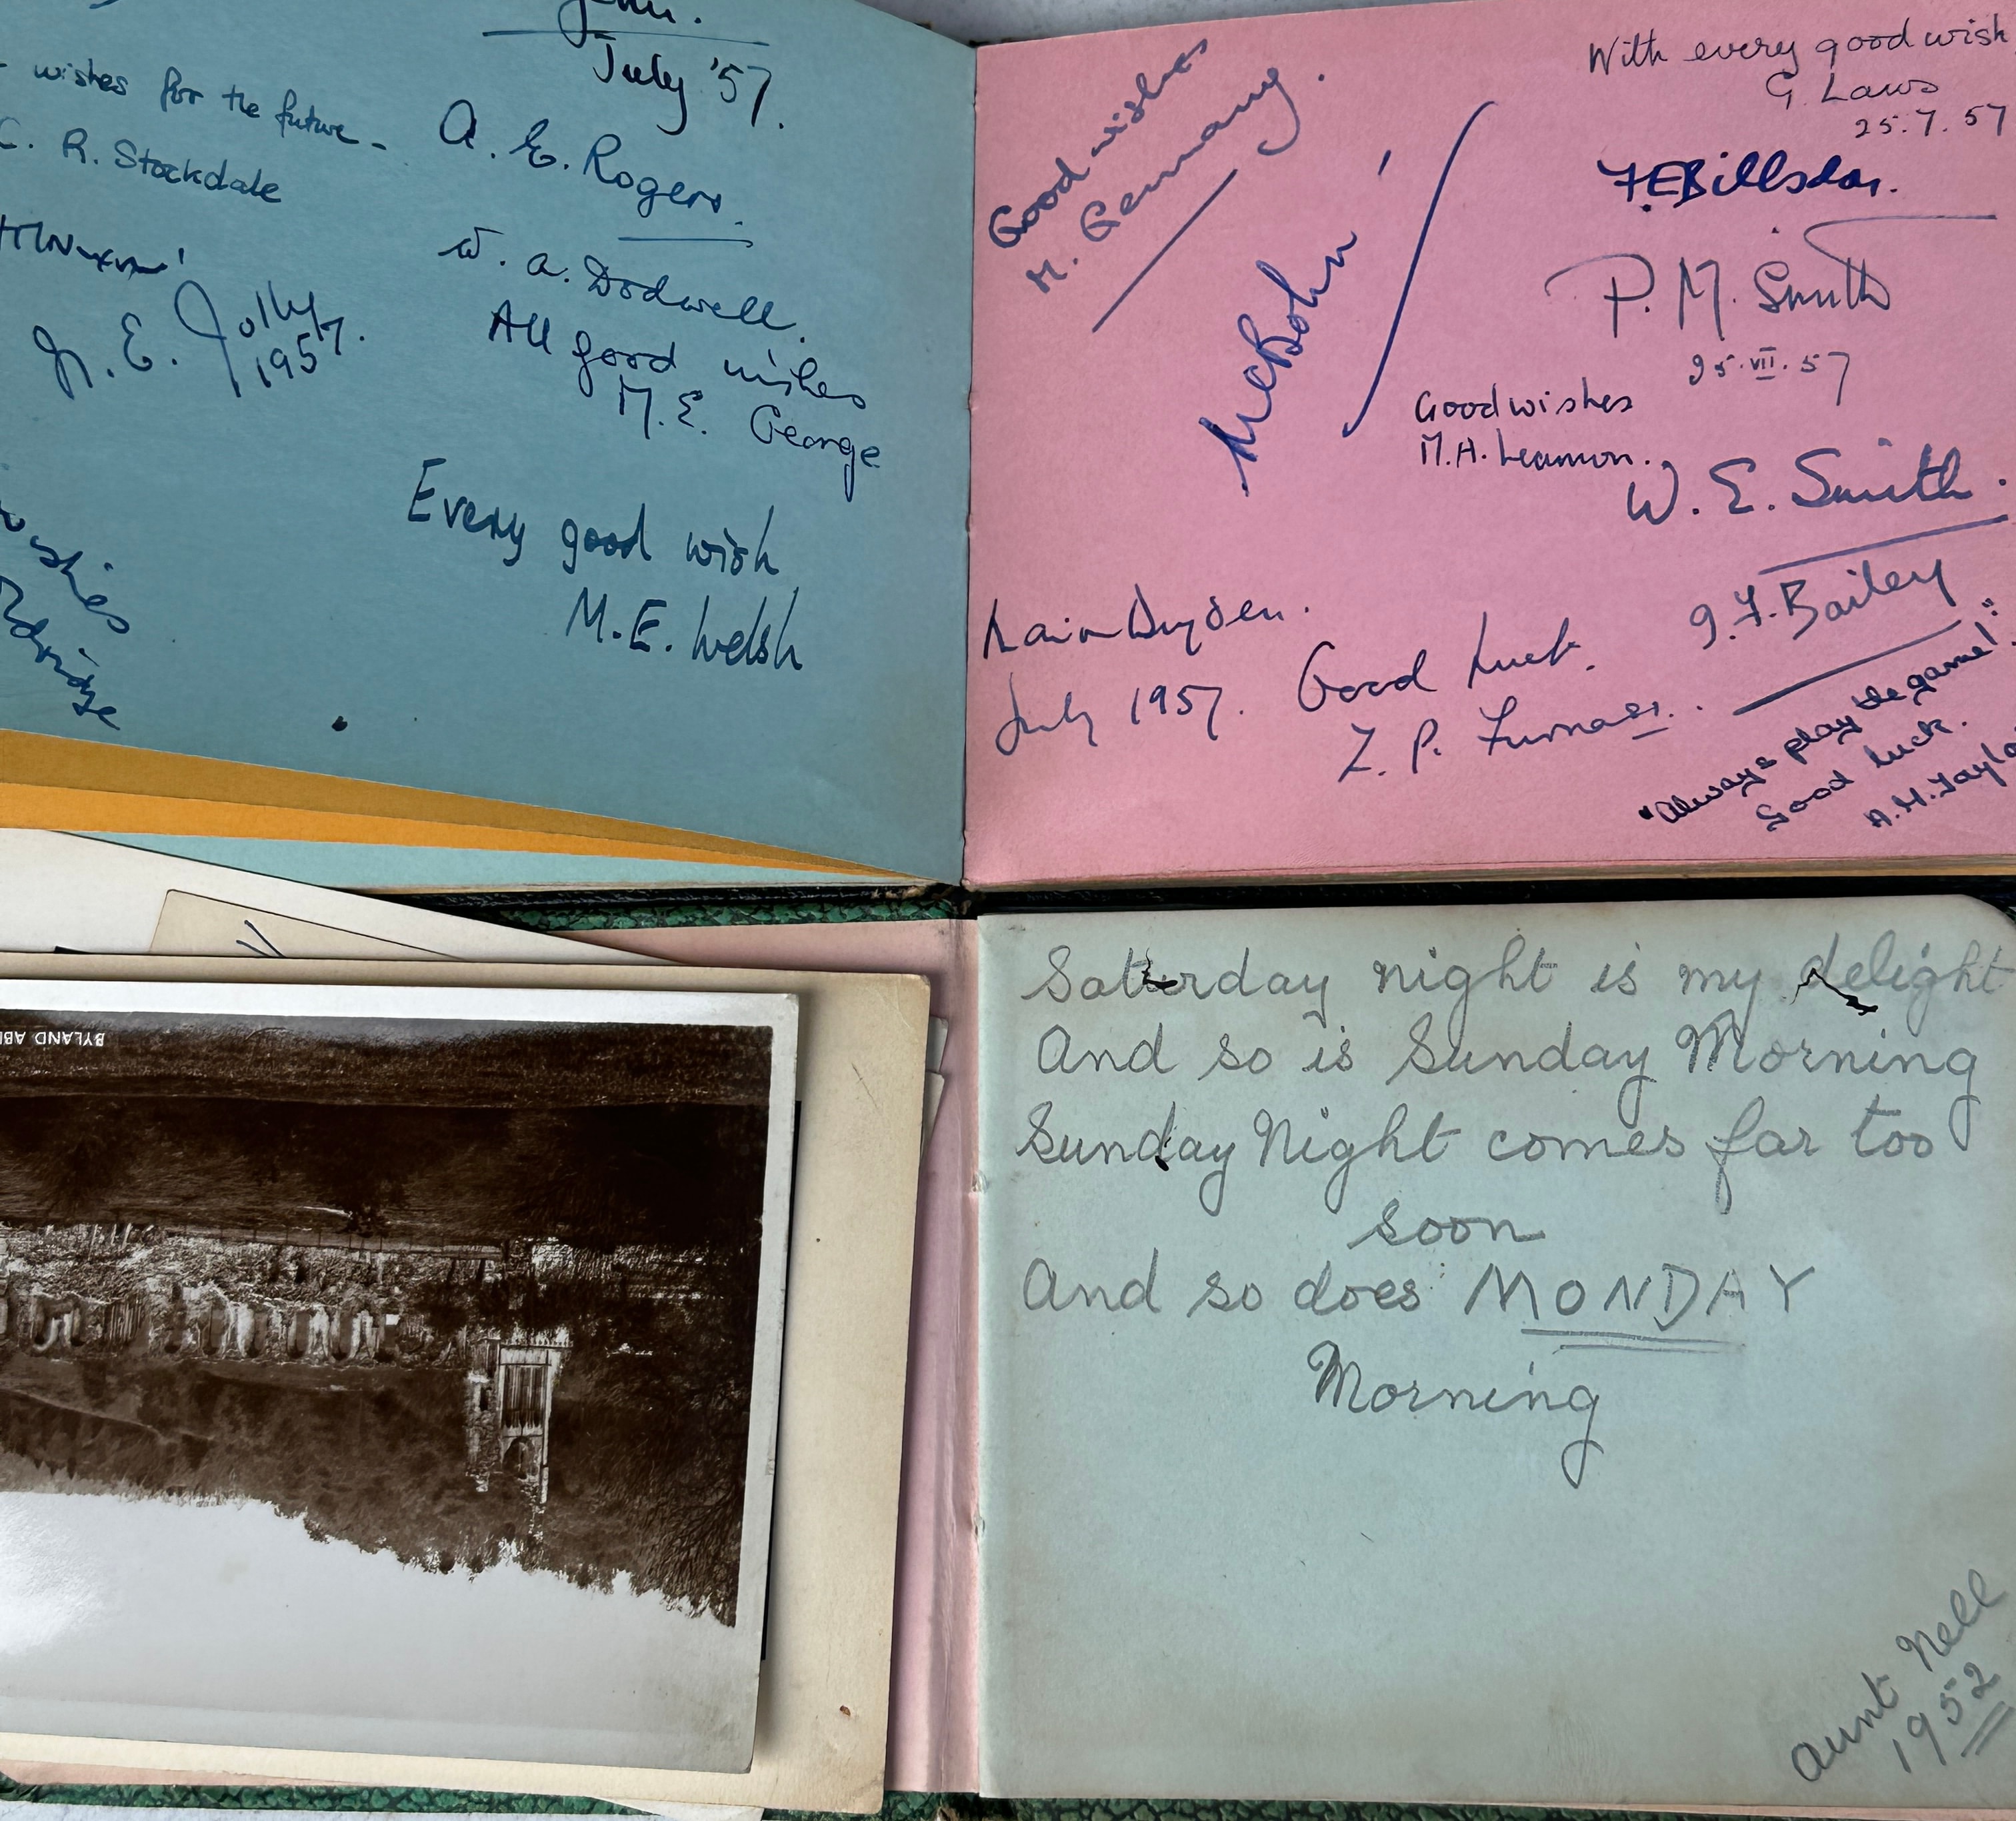 July '57.
wishes for the future -
R. Stockdale
A. E. Rogers.
W. A. Dodwell.
N. E. Jolly
1957.
All good wishes
M. E. George
Every good wish
M. E. Welsh
wishes
Good wishes
M. Germany.
With every good wish
G. Laws
25.7.57
P. M. Smith
25.VII.57
Good wishes
M. H. Leamon.
W. E. Smith.
Dryden.
July 1957.
Good Luck.
Z. P. Furness.
J. F. Bailey
"Always play the game!"
Good luck.
A. H. Taylo
BYLAND ABB
Saturday night is my delight
And so is Sunday Morning
Sunday Night comes far too
soon
And so does MONDAY
Morning
Aunt Nell
1952